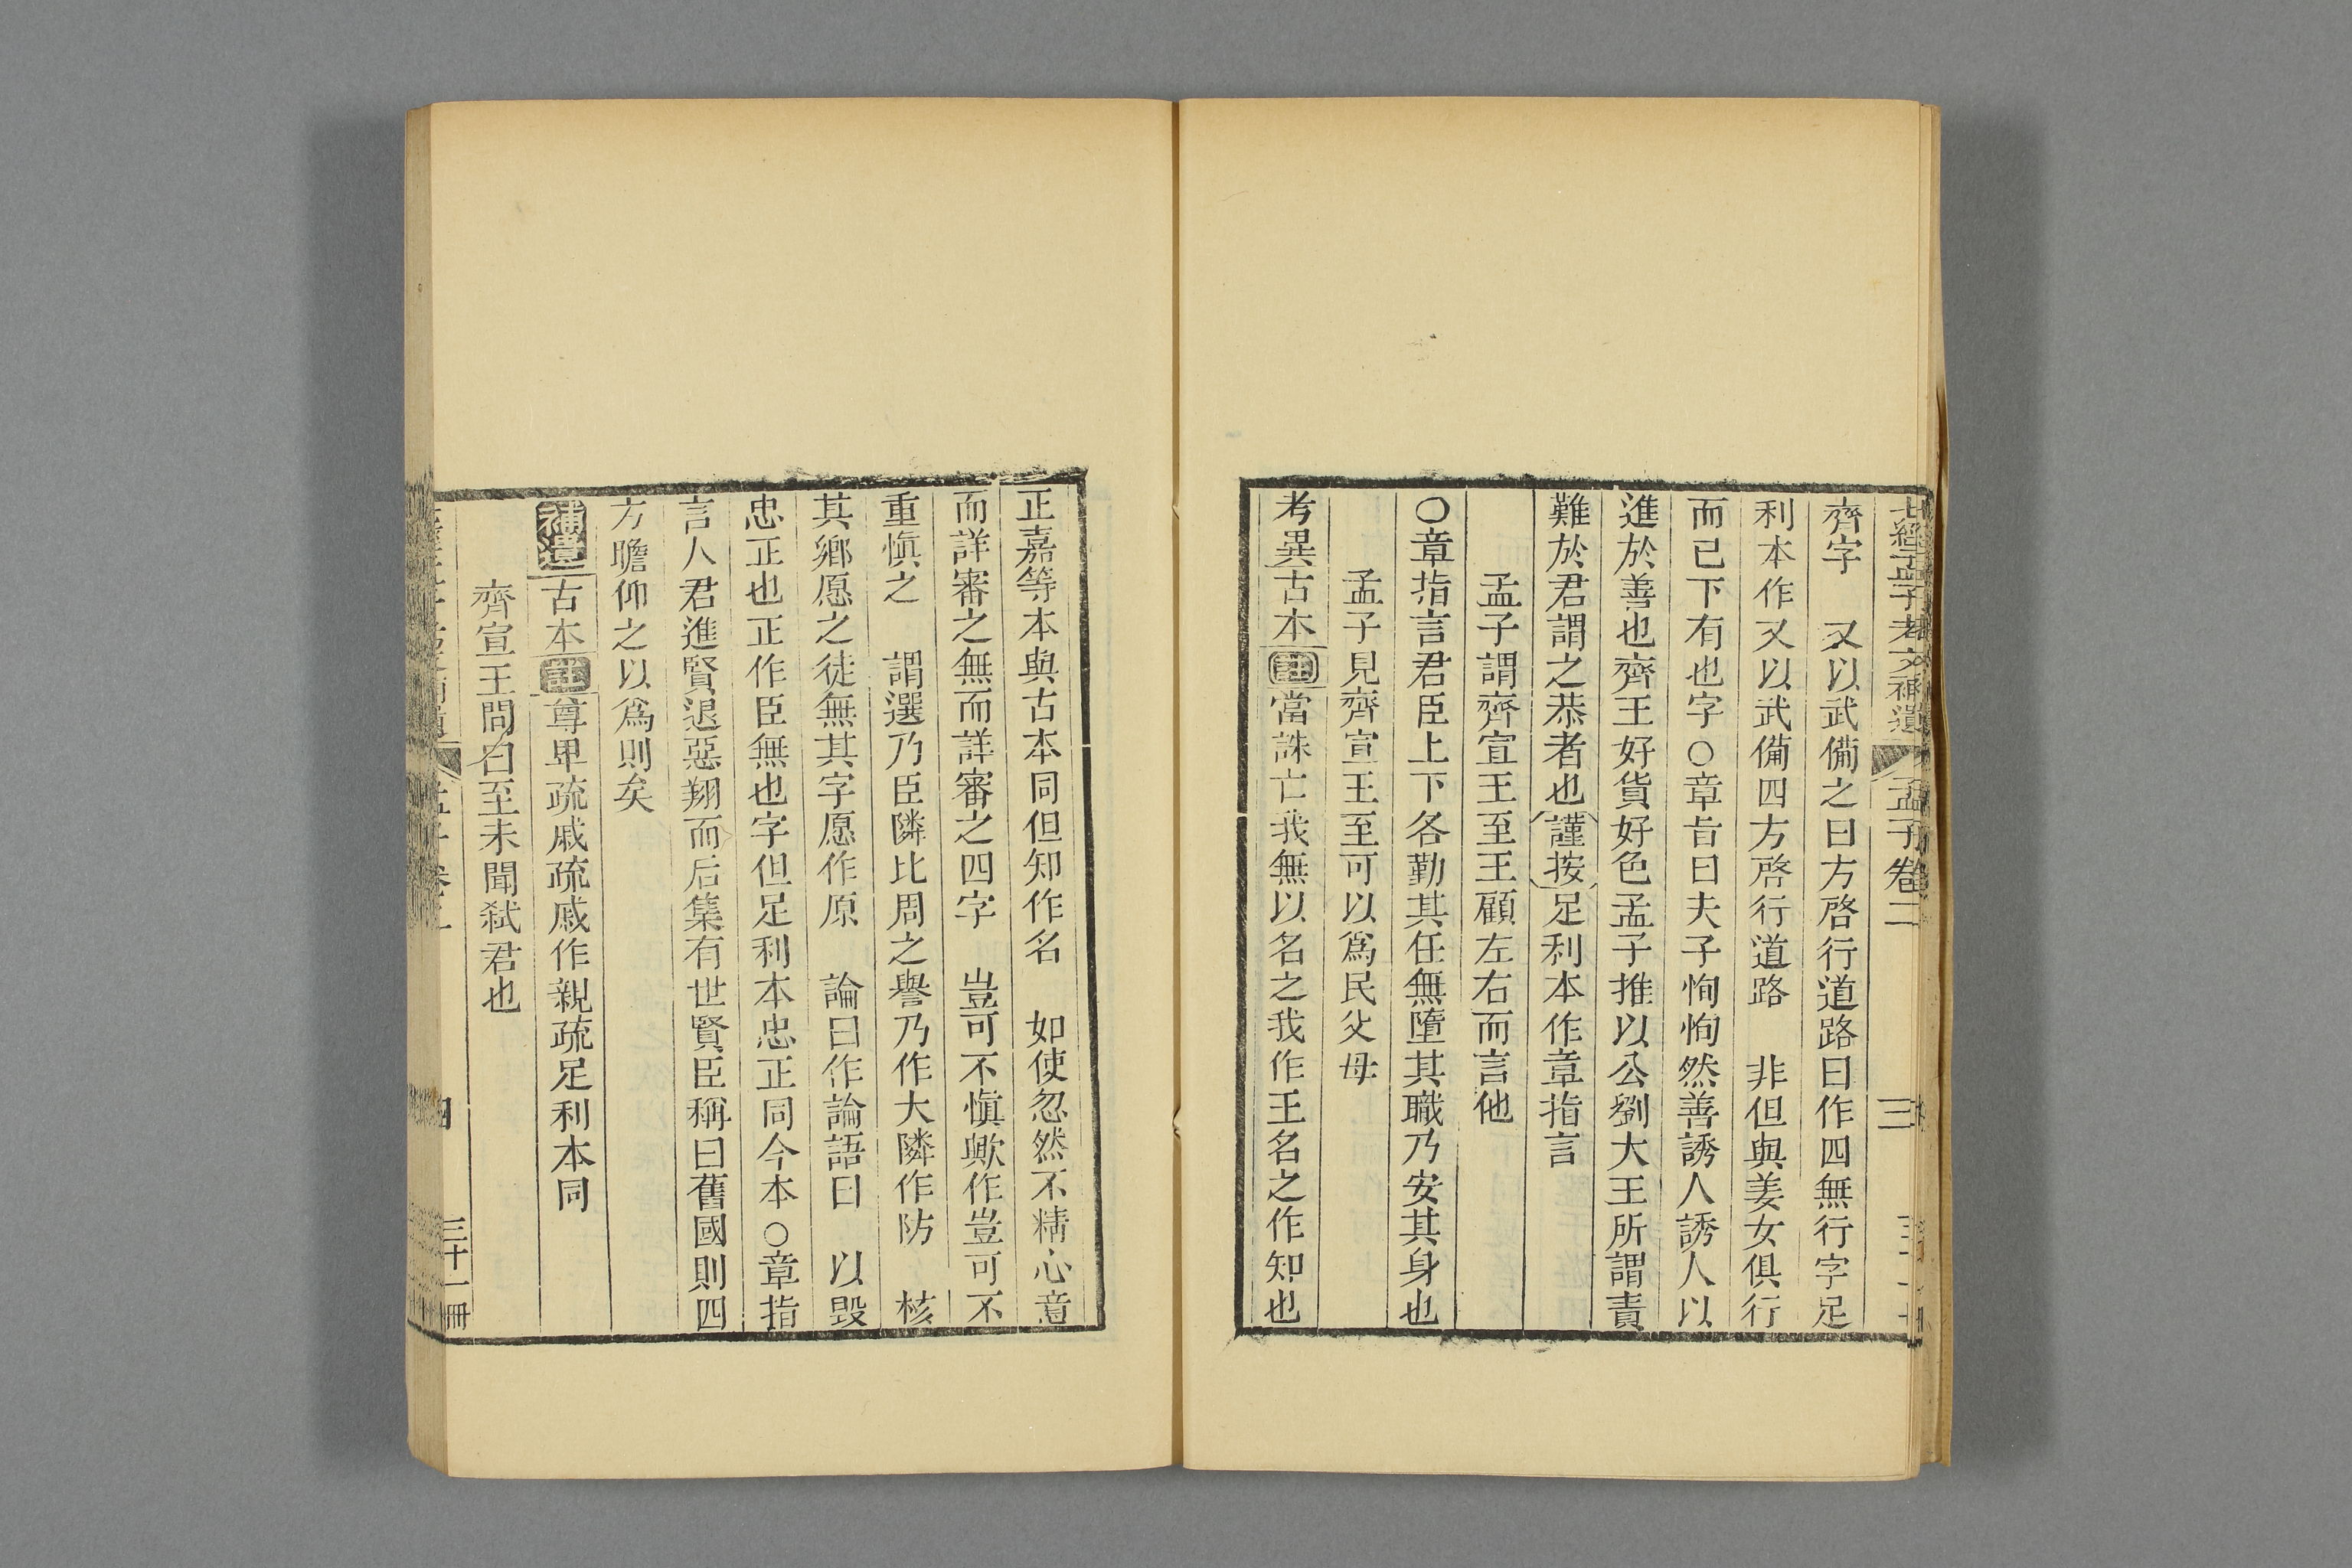 七經孟子考文補遺 孟子卷二 三
齊字　又以武備之曰方啓行道路曰作四無行字足
利本作又以武備四方啓行道路　非但與姜女俱行
而已下有也字○章旨曰夫子恂恂然善誘人誘人以
進於善也齊王好貨好色孟子推以公劉大王所謂責
難於君謂之恭者也謹按足利本作章指言
孟子謂齊宣王至王顧左右而言他
○章指言君臣上下各勤其任無墮其職乃安其身也
孟子見齊宣王至可以爲民父母
考異古本註當誅亡我無以名之我作王名之作知也
正嘉等本與古本同但知作名　如使忽然不精心意
而詳審之無而詳審之四字　豈可不愼歟作豈可不
重愼之　謂選乃臣隣比周之譽乃作大隣作防　核
其鄉愿之徒無其字愿作原　論曰作論語曰　以毀
忠正也正作臣無也字但足利本忠正同今本○章指
言人君進賢退惡翔而后集有世賢臣稱曰舊國則四
方瞻仰之以爲則矣
補遺古本註尊卑疏戚疏戚作親疏足利本同
齊宣王問曰至未聞弑君也
四 三十一冊